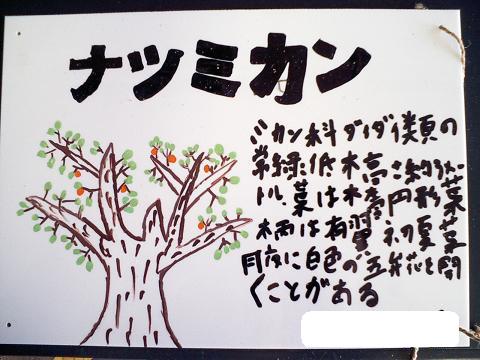 ナツミカン
ミカン科ダイダイ類の
常緑低木高さ約3メー
トル 葉は楕円形葉
柄は有翼 初夏葉
月夜に白色の五花を開
くことがある